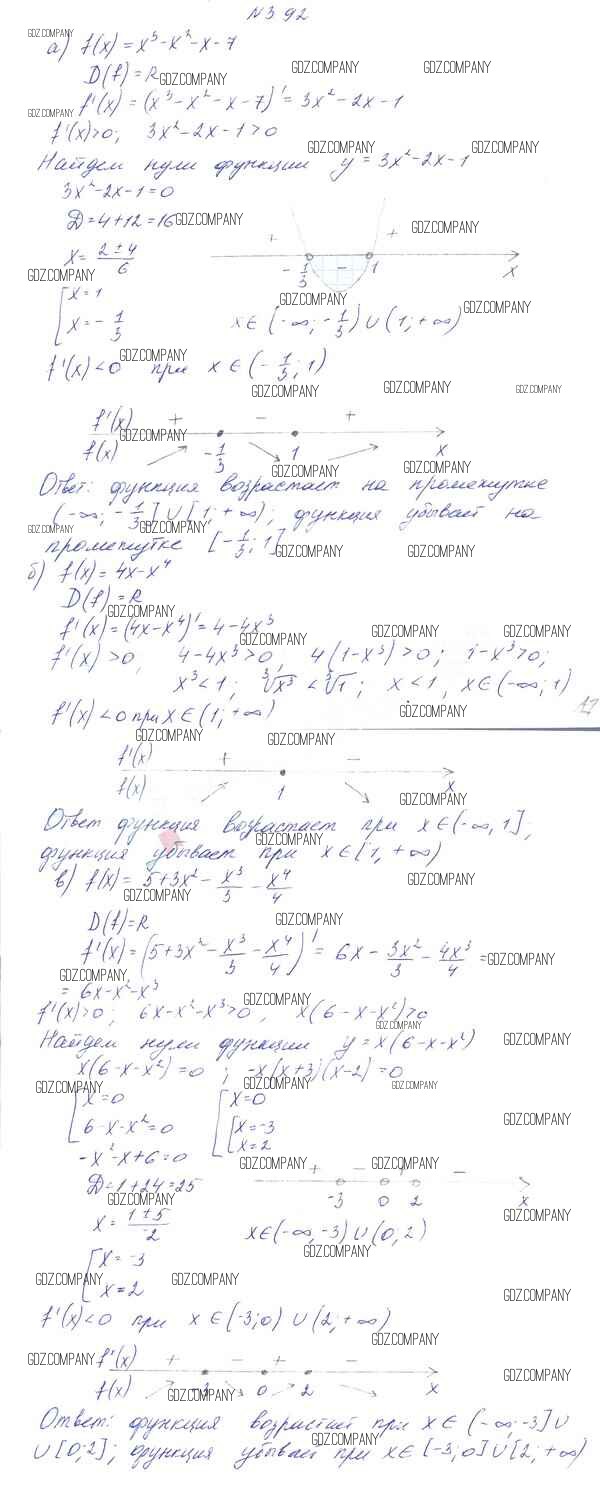 N 3 92
а) f(x) = x³-x²-x-7
D(f) = R
f'(x) = (x³-x²-x-7)' = 3x²-2x-1
f'(x)>0; 3x²-2x-1>0
Найдем нули функции y = 3x²-2x-1
3x²-2x-1=0
D=4+12=16
x = (2±4)/6
+ - +
-1/3 1 x
[x=1
x=-1/3
x∈(-∞; -1/3)∪(1; +∞)
f'(x)<0 при x∈(-1/3; 1)
f'(x) + - +
f(x) -1/3 1 x
Ответ: функция возрастает на промежутке
(-∞; -1/3]∪[1; +∞); функция убывает на
промежутке [-1/3; 1]
б) f(x) = 4x-x⁴
D(f) = R
f'(x) = (4x-x⁴)' = 4-4x³
f'(x)>0, 4-4x³>0, 4(1-x³)>0; 1-x³>0;
x³<1; ∛x³ < ∛1; x<1, x∈(-∞; 1)
f'(x)<0 при x∈(1; +∞)
f'(x) + -
f(x) 1 x
Ответ функция возрастает при x∈(-∞, 1];
функция убывает при x∈[1, +∞)
в) f(x) = 5+3x² - x³/3 - x⁴/4
D(f)=R
f'(x) = (5+3x² - x³/3 - x⁴/4)' = 6x - 3x²/3 - 4x³/4 =
= 6x-x²-x³
f'(x)>0; 6x-x²-x³>0, x(6-x-x²)>0
Найдем нули функции y = x(6-x-x²)
x(6-x-x²)=0; -x(x+3)(x-2)=0
[x=0 [x=0
6-x-x²=0 [x=-3
x=2
-x²-x+6=0
D=1+24=25
+ - + -
-3 0 2 x
x = (1±5)/-2
x∈(-∞,-3)∪(0,2)
[x=-3
x=2
f'(x)<0 при x∈(-3;0)∪(2; +∞)
f'(x) + - + -
f(x) -3 0 2 x
Ответ: функция возрастает при x∈(-∞;-3]∪
∪[0;2]; функция убывает при x∈[-3;0]∪[2; +∞)
GDZ.COMPANY